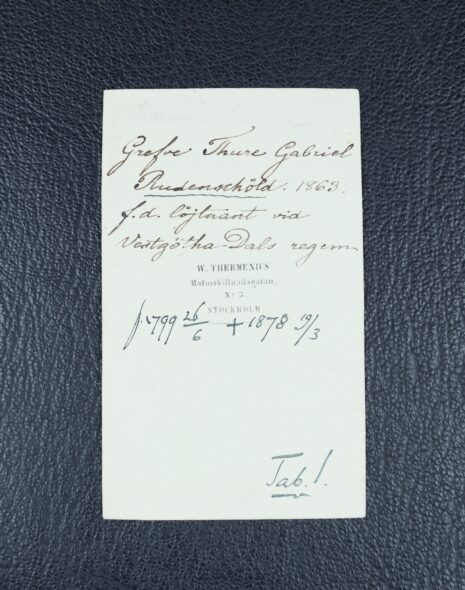 Grefve Thure Gabriel
Rudenschöld. 1863.
f.d. löjtnant vid
Vestgötha-Dals regem.
W. THERMENIUS
Malmskillnadsgatan,
No 3.
STOCKHOLM
f. 1799 26/6 + 1878 19/3
Tab. 1.